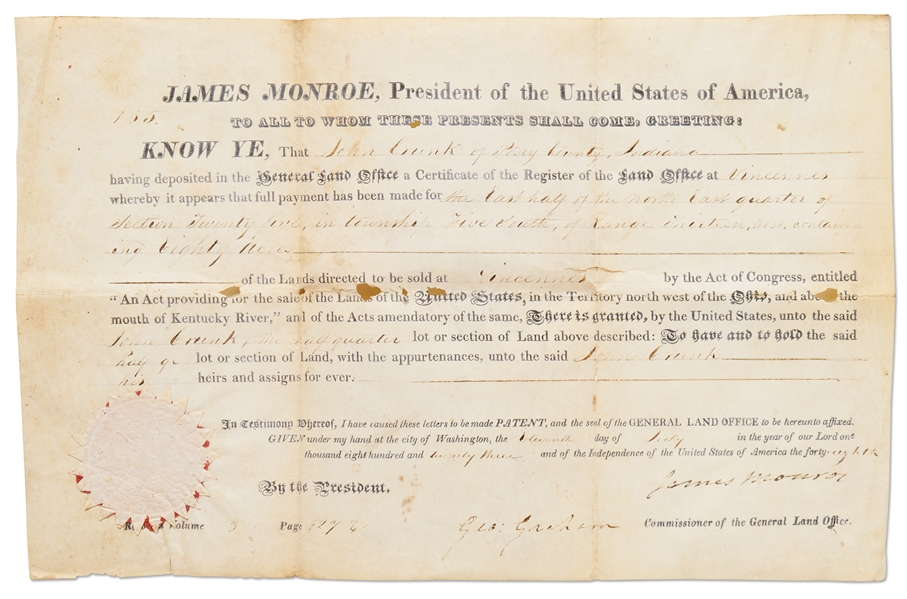 JAMES MONROE, President of the United States of America,
TO ALL TO WHOM THESE PRESENTS SHALL COME, GREETING:
KNOW YE, That John Crunk of Posey County, Indiana
having deposited in the General Land Office a Certificate of the Register of the Land Office at Vincennes
whereby it appears that full payment has been made for the East half of the north East quarter of
Section Twenty five, in township Five South, of Range Thirteen, West, contain
ing Eighty Acres
of the Lands directed to be sold at Vincennes by the Act of Congress, entitled
"An Act providing for the sale of the Lands of the United States, in the Territory north west of the Ohio, and above the
mouth of Kentucky River," and of the Acts amendatory of the same, There is granted, by the United States, unto the said
Crunk, the half quarter lot or section of Land above described: To have and to hold the said
half qr lot or section of Land, with the appurtenances, unto the said Crunk
his heirs and assigns for ever.
In Testimony Whereof, I have caused these letters to be made PATENT, and the seal of the GENERAL LAND OFFICE to be hereunto affixed.
GIVEN under my hand at the city of Washington, the Eleventh day of July in the year of our Lord one
thousand eight hundred and twenty three and of the Independence of the United States of America the forty-eighth
James Monroe
By the President,
Geo: Graham Commissioner of the General Land Office.
Volume 3 Page